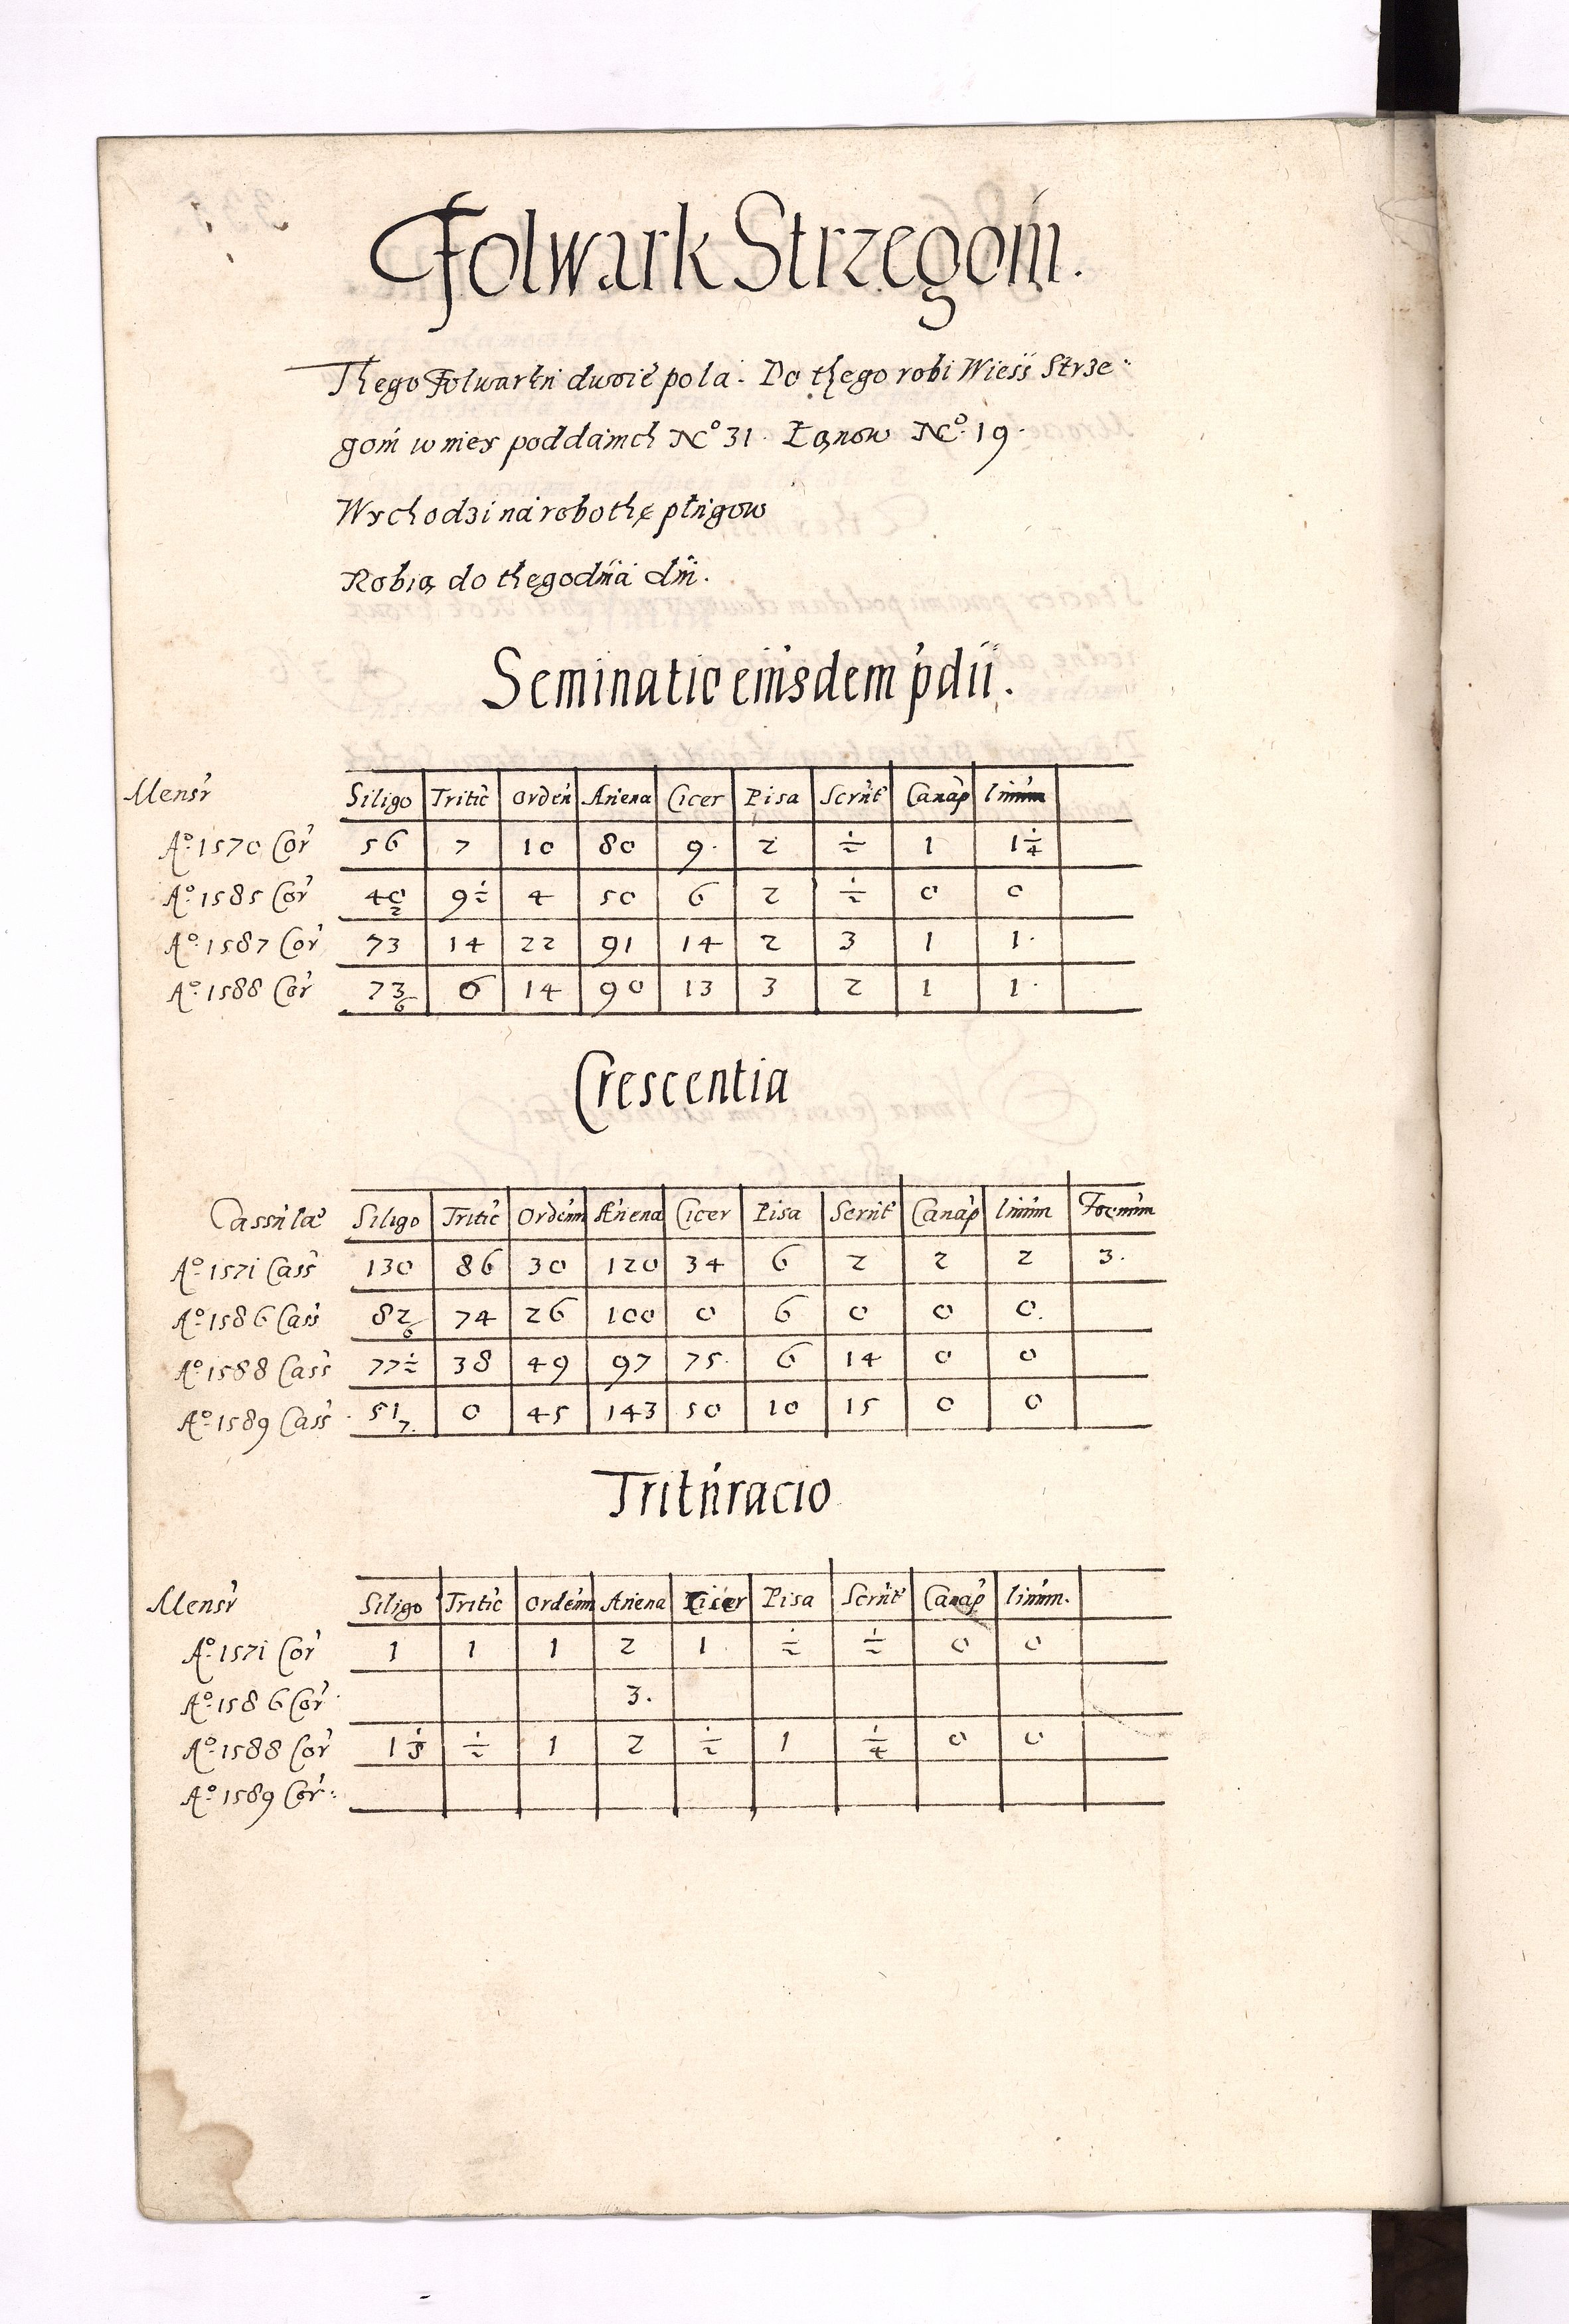 Folwark Strzegom.
Thego Folwarku dwoie pola. Do thego robi Wiess Strze:
gom w niey poddanich No 31. Łanow No. 19.
Wychodzi na robothę pługow
Robią do thegodnia dni.
Seminatio eiusdem pdii.
Mensr Siligo Tritic Ordeu Auena Cicer Pisa Scrut Canap linum
Ao. 1570 Cor 56 7 10 80 9. 2 ½ 1 1¼
Ao. 1585 Cor 40 2 9½ 4 50 6 2 ½ 0 0
Ao. 1587 Cor 73 14 22 91 14 2 3 1 1.
Ao. 1588 Cor 73 6 6 14 90 13 3 2 1 1.
Crescentia
Cassulae Siligo Tritic Ordeum Auena Cicer Pisa Scrut Canap linum Foenum
Ao. 1571 Cass 130 86 30 120 34 6 2 2 2 3.
Ao. 1586 Cass 82 6 74 26 100 0 6 0 0 0.
Ao. 1588 Cass 77½ 38 49 97 75. 6 14 0 0
Ao. 1589 Cass 51 7. 0 45 143 50 10 15 0 0
Trituracio
Mensr Siligo Tritic Ordeum Auena Cicer Pisa Scrut Canap linum.
Ao. 1571 Cor 1 1 1 2 1 ½ ½ 0 0
Ao. 1586 Cor 3.
Ao. 1588 Cor 1 ½ 1 2 ½ 1 ¼ 0 0
Ao. 1589 Cor: